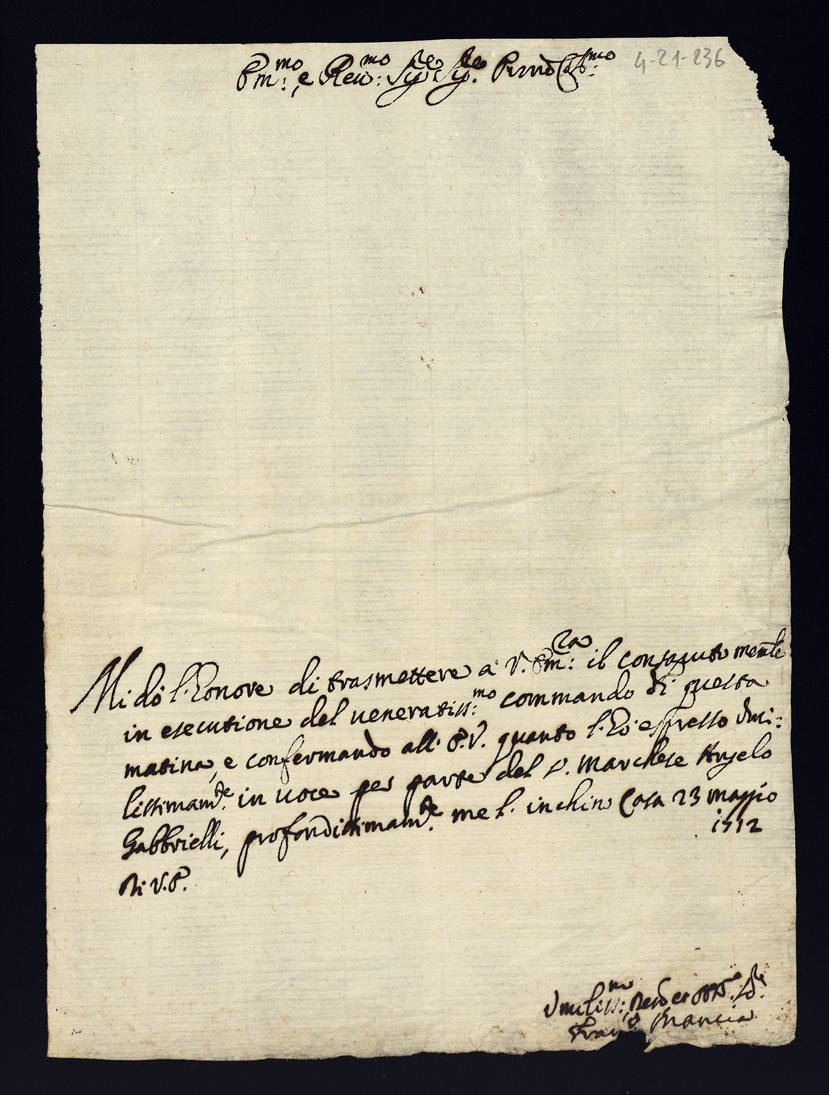 Em.mo, e Reu.mo Sig.re Sig.re Prnõ Col.mo 4-21-236
Mi dò l'honore di trasmettere a V. Em.za il contenuto
in esecutione del veneratiss.mo commando di questa
matina, e confermando all'E.V. quanto l'hò espresso vmi:
lissimam.te in voce per parte del S. Marchese Angelo
Gabbrielli, profondissimam.te me l'inchino Casa 23 maggio
1712
Di V.E.
Vmiliss.mo
Fran.co Mancia